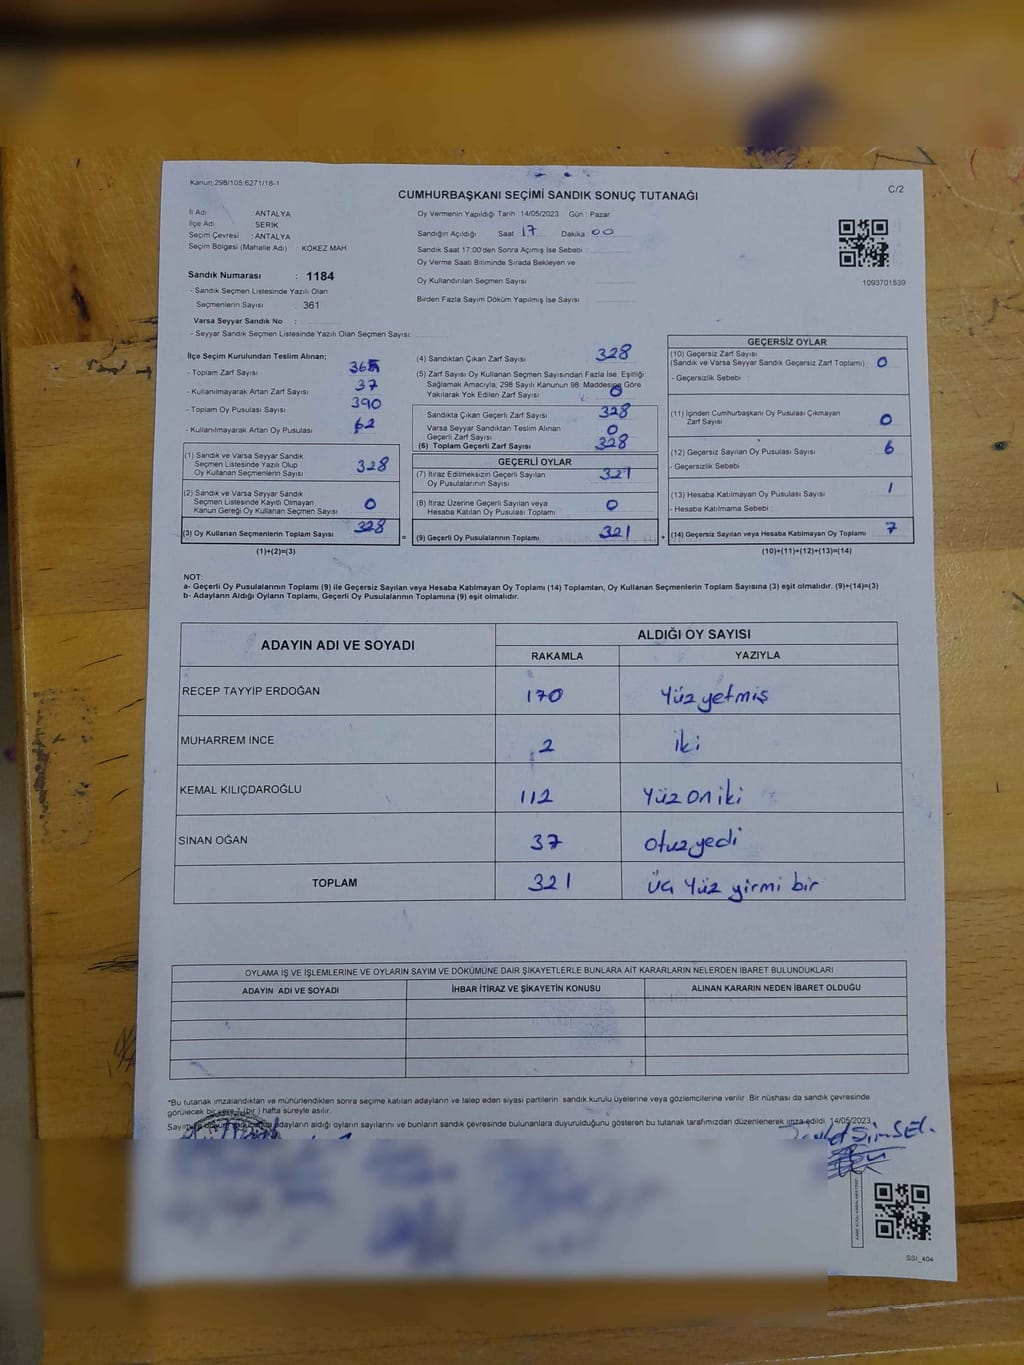 Kanun: 298/105;6271/18-1
C/2
CUMHURBAŞKANI SEÇİMİ SANDIK SONUÇ TUTANAĞI
İl Adı ANTALYA
İlçe Adı : SERİK
Seçim Çevresi : ANTALYA
Seçim Bölgesi (Mahalle Adı) : KÖKEZ MAH
Sandık Numarası : 1184
- Sandık Seçmen Listesinde Yazılı Olan
Seçmenlerin Sayısı : 361
Varsa Seyyar Sandık No :
- Seyyar Sandık Seçmen Listesinde Yazılı Olan Seçmen Sayısı:
Oy Vermenin Yapıldığı Tarih : 14/05/2023 Gün : Pazar
Sandığın Açıldığı Saat 17 Dakika 00
Sandık Saat 17:00'den Sonra Açımış İse Sebebi :
Oy Verme Saati Bitiminde Sırada Bekleyen ve
Oy Kullandırılan Seçmen Sayısı
Birden Fazla Sayım Döküm Yapılmış İse Sayısı :
1093701539
İlçe Seçim Kurulundan Teslim Alınan;
- Toplam Zarf Sayısı
- Kullanılmayarak Artan Zarf Sayısı 37
- Toplam Oy Pusulası Sayısı 390
- Kullanılmayarak Artan Oy Pusulası 62
(1) Sandık ve Varsa Seyyar Sandık
Seçmen Listesinde Yazılı Olup
Oy Kullanan Seçmenlerin Sayısı 328
(2) Sandık ve Varsa Seyyar Sandık
Seçmen Listesinde Kayıtlı Olmayan
Kanun Gereği Oy Kullanan Seçmen Sayısı 0
(3) Oy Kullanan Seçmenlerin Toplam Sayısı 328
(1)+(2)=(3)
(4) Sandıktan Çıkan Zarf Sayısı 328
(5) Zarf Sayısı Oy Kullanan Seçmen Sayısından Fazla İse, Eşitliği
Sağlamak Amacıyla; 298 Sayılı Kanunun 98. Maddesine Göre
Yakılarak Yok Edilen Zarf Sayısı 0
Sandıkta Çıkan Geçerli Zarf Sayısı 328
Varsa Seyyar Sandıktan Teslim Alınan
Geçerli Zarf Sayısı 0
(6) Toplam Geçerli Zarf Sayısı 328
GEÇERLİ OYLAR
(7) İtiraz Edilmeksizin Geçerli Sayılan
Oy Pusulalarının Sayısı 321
(8) İtiraz Üzerine Geçerli Sayılan veya
Hesaba Katılan Oy Pusulası Toplamı 0
= (9) Geçerli Oy Pusulalarının Toplamı 321 +
GEÇERSİZ OYLAR
(10) Geçersiz Zarf Sayısı
(Sandık ve Varsa Seyyar Sandık Geçersiz Zarf Toplamı) : 0
- Geçersizlik Sebebi :
(11) İçinden Cumhurbaşkanı Oy Pusulası Çıkmayan
Zarf Sayısı 0
(12) Geçersiz Sayılan Oy Pusulası Sayısı 6
- Geçersizlik Sebebi
(13) Hesaba Katılmayan Oy Pusulası Sayısı 1
- Hesaba Katılmama Sebebi :
(14) Geçersiz Sayılan veya Hesaba Katılmayan Oy Toplamı 7
(10)+(11)+(12)+(13)=(14)
NOT:
a- Geçerli Oy Pusulalarının Toplamı (9) ile Geçersiz Sayılan veya Hesaba Katılmayan Oy Toplamı (14) Toplamları, Oy Kullanan Seçmenlerin Toplam Sayısına (3) eşit olmalıdır. (9)+(14)=(3)
b- Adayların Aldığı Oyların Toplamı, Geçerli Oy Pusulalarının Toplamına (9) eşit olmalıdır.
ADAYIN ADI VE SOYADI ALDIĞI OY SAYISI
RAKAMLA YAZIYLA
RECEP TAYYİP ERDOĞAN 170 Yüz yetmiş
MUHARREM İNCE 2 iki
KEMAL KILIÇDAROĞLU 112 Yüz on iki
SİNAN OĞAN 37 otuz yedi
TOPLAM 321 üç Yüz yirmi bir
OYLAMA İŞ VE İŞLEMLERİNE VE OYLARIN SAYIM VE DÖKÜMÜNE DAİR ŞİKAYETLERLE BUNLARA AİT KARARLARIN NELERDEN İBARET BULUNDUKLARI
ADAYIN ADI VE SOYADI İHBAR İTİRAZ VE ŞİKAYETİN KONUSU ALINAN KARARIN NEDEN İBARET OLDUĞU
*Bu tutanak imzalandıktan ve mühürlendikten sonra seçime katılan adayların ve talep eden siyasi partilerin sandık kurulu üyelerine veya gözlemcilerine verilir. Bir nüshası da sandık çevresinde
görülecek bir yere 1 (bir ) hafta süreyle asılır.
adayların aldığı oyların sayılarını ve bunların sandık çevresinde bulunanlara duyurulduğunu gösteren bu tutanak tarafımızdan düzenlenerek imza edildi. 14/05/2023
SSI_404